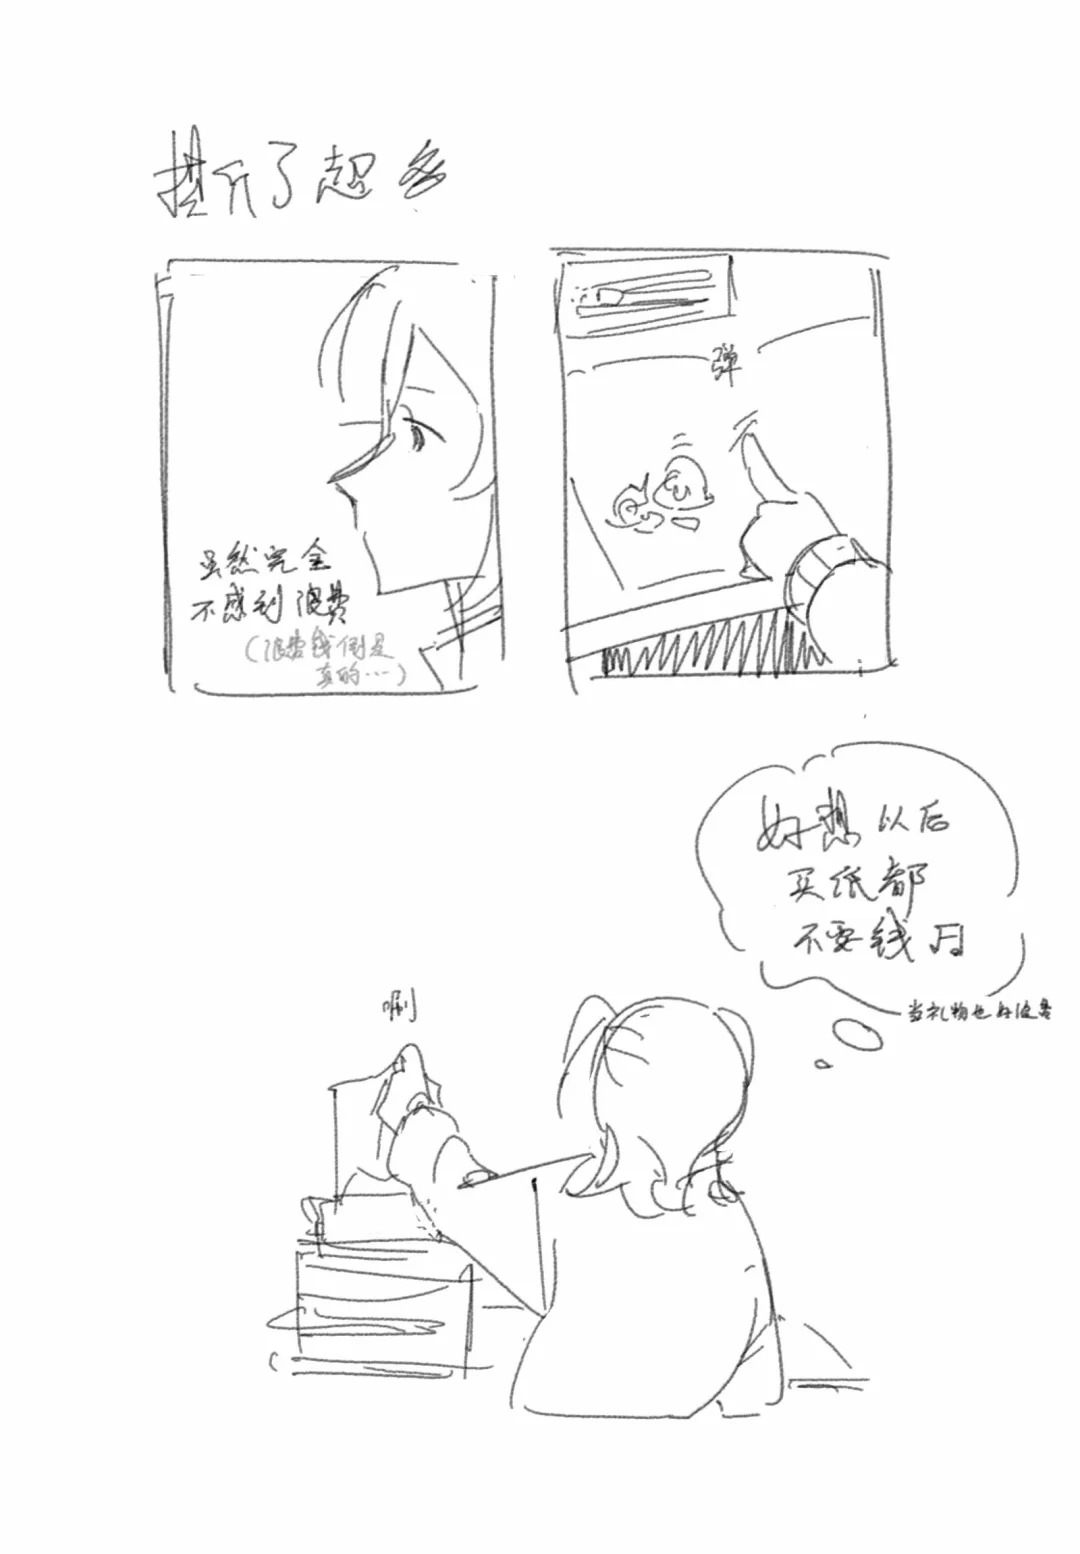 了超多
弹
虽然完全
不感到浪费
(浪费钱倒是
真的…)
好想以后
买纸都
不要钱
当礼物也好
唰